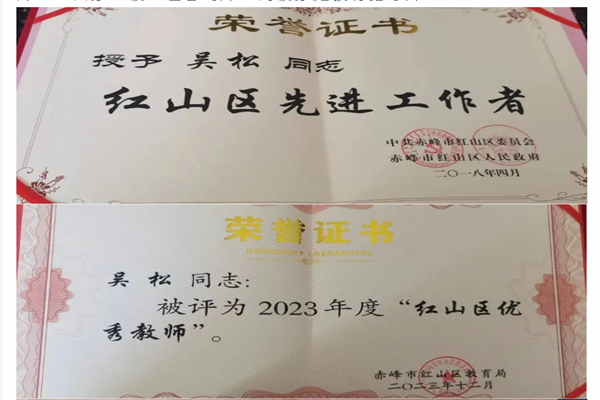 荣誉证书
授予 吴松 同志
红山区先进工作者
中共赤峰市红山区委员会
赤峰市红山区人民政府
二〇一八年四月
荣誉证书
HONORARY CREDENTIAL
吴松 同志:
被评为2023年度“红山区优
秀教师”。
赤峰市红山区教育局
二〇二三年十二月